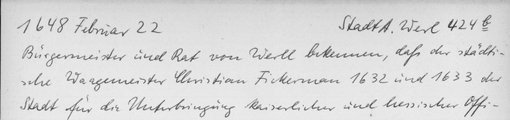 1648 Februar 22 StadtA. Werl 424 b
Bürgermeister und Rat von Werll bekennen, daß der städti-
sche Waagemeister Christian Fickerman 1632 und 1633 der
Stadt für die Unterbringung kaiserlicher und hessischer Offi-